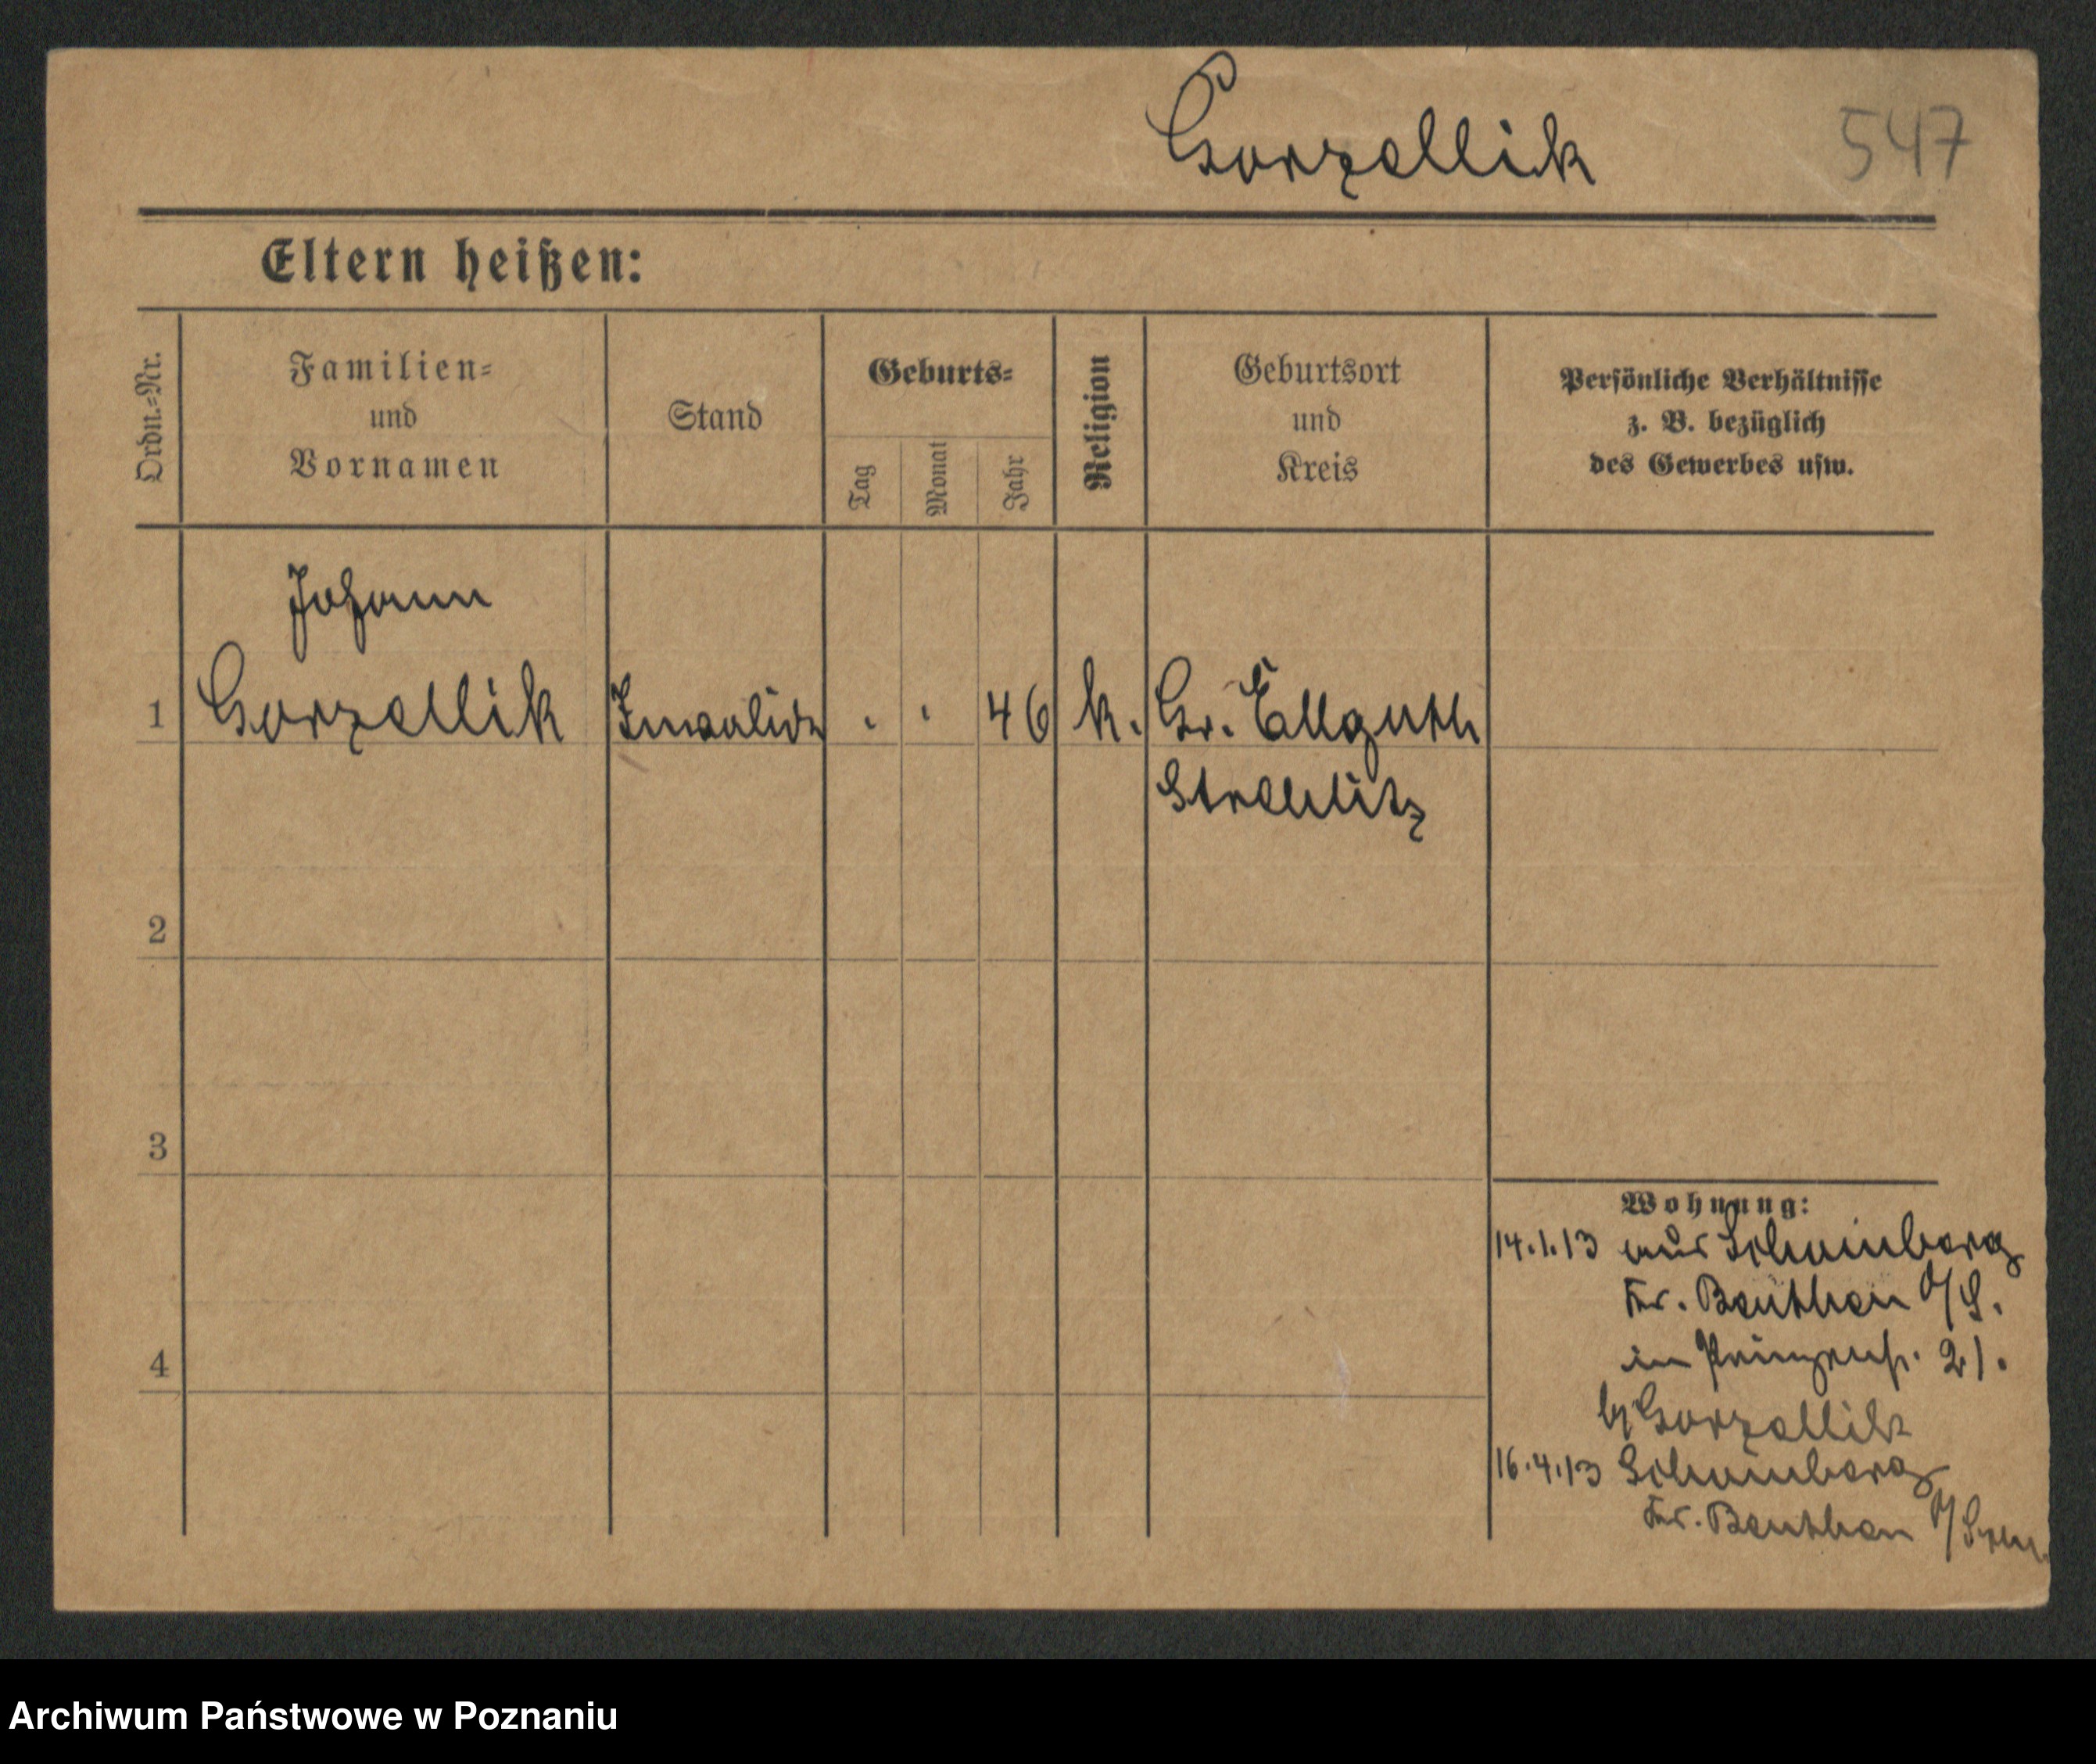 Gorzellik
547
Eltern heißen:
Ordn.-Nr.
Familien-
und
Vornamen
Stand
Geburts-
Tag
Monat
Jahr
Religion
Geburtsort
und
Kreis
Persönliche Verhältnisse
z. B. bezüglich
des Gewerbes usw.
Johann
1 Gorzellik Invalide . . 46 k. Gr. Ellguth
Strehlitz
2
3
4
Wohnung:
14.1.13 aus Schomberg
Kr. Beuthen O/S.
in Prinzenstr. 21.
b/ Gorzellik
16.4.13 Schomberg
Kr. Beuthen
Archiwum Państwowe w Poznaniu